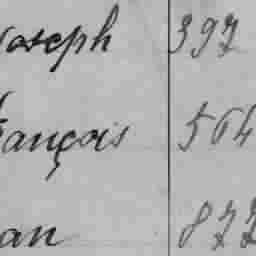 Joseph 397
François 564
an 872